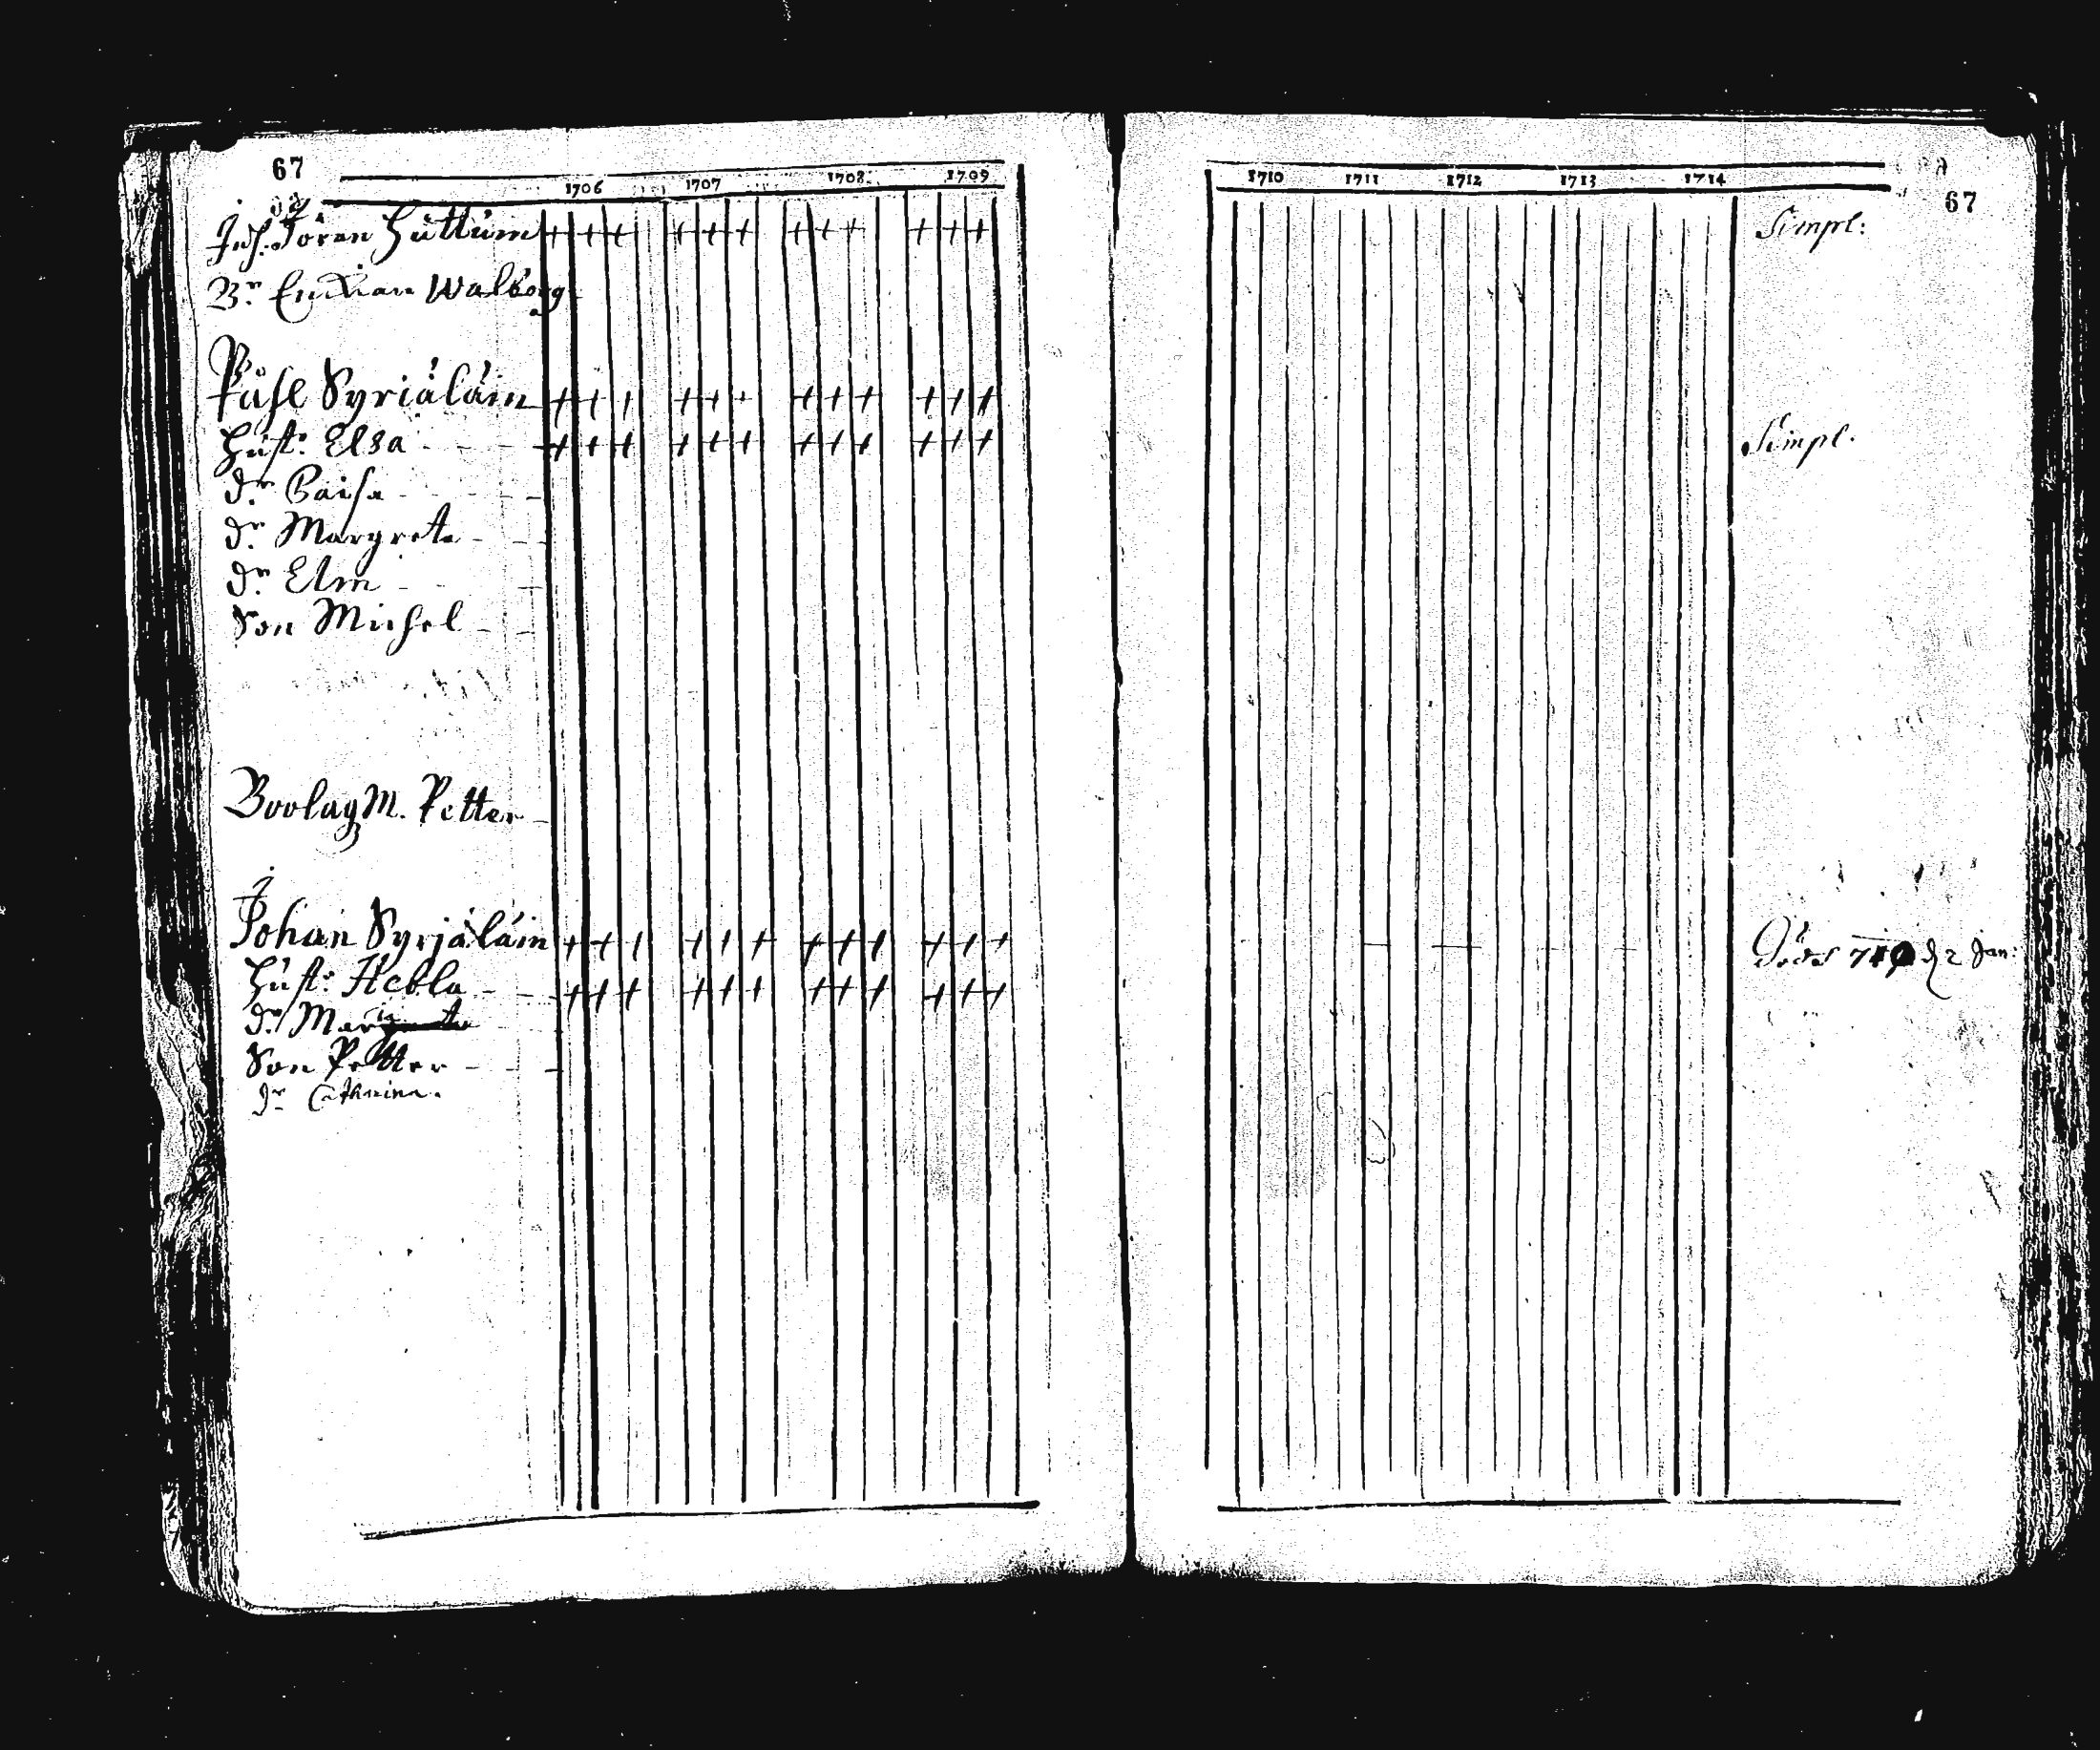 67
1706 1707 1708 1709
Inh. Jören Huttuin + + + + + + + + + + + +
Br. Enckian Walborg
B
Påhl Syriäläin + + + + + + + + + + + +
Hust: Elsa + + + + + + + + + + + +
dr Caisa
dr Margreta
dr Elin
Son Michel
Boolag M. Petter
Johan Syrjäläin + + + + + + + + + + + +
Hust: Hebla + + + + + + + + + + + +
dr Margreta
Son Petter
dr Catharina.
1710 1711 1712 1713 1714
67
Simpl:
Simpl.
d. 2 Jan: